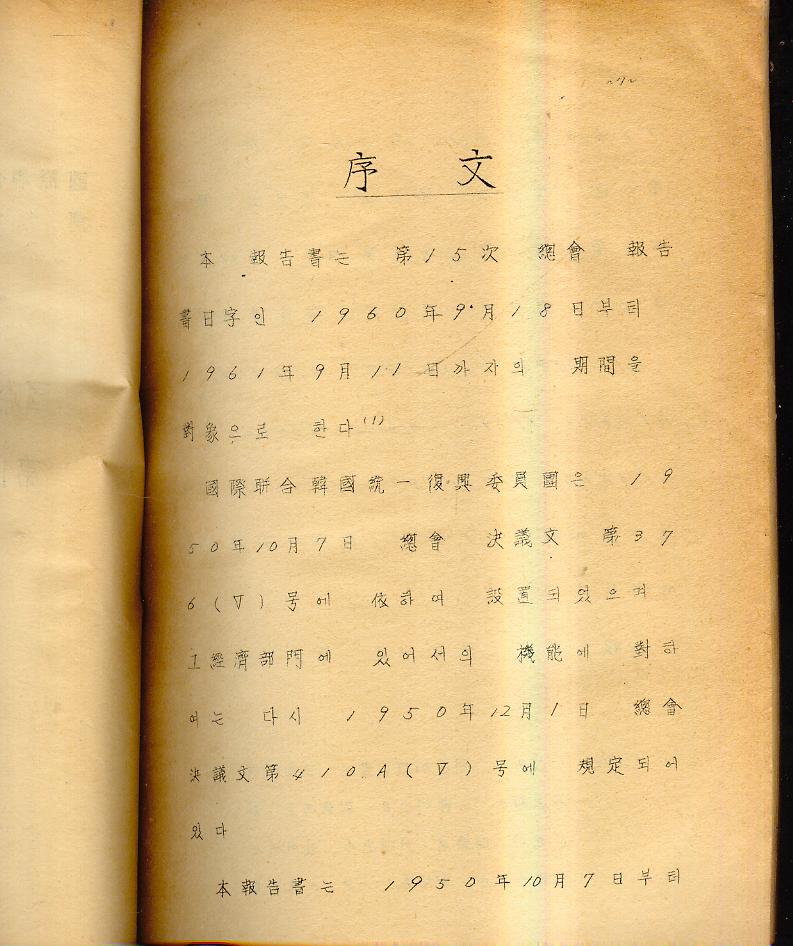 序 文
本 報告書는 第15次 總會 報告
書日字인 1960年9月18日부터
1961年9月11日까지의 期間을
對象으로 한다(1)
國際聯合韓國統一復興委員團은 19
50年10月7日 總會 決議文 第37
6(V)号에 依하여 設置되었으며
그經濟部門에 있어서의 機能에 對하
여는 다시 1950年12月1日 總會
決議文第410A(V)号에 規定되어
있다
本報告書는 1950年10月7日부터